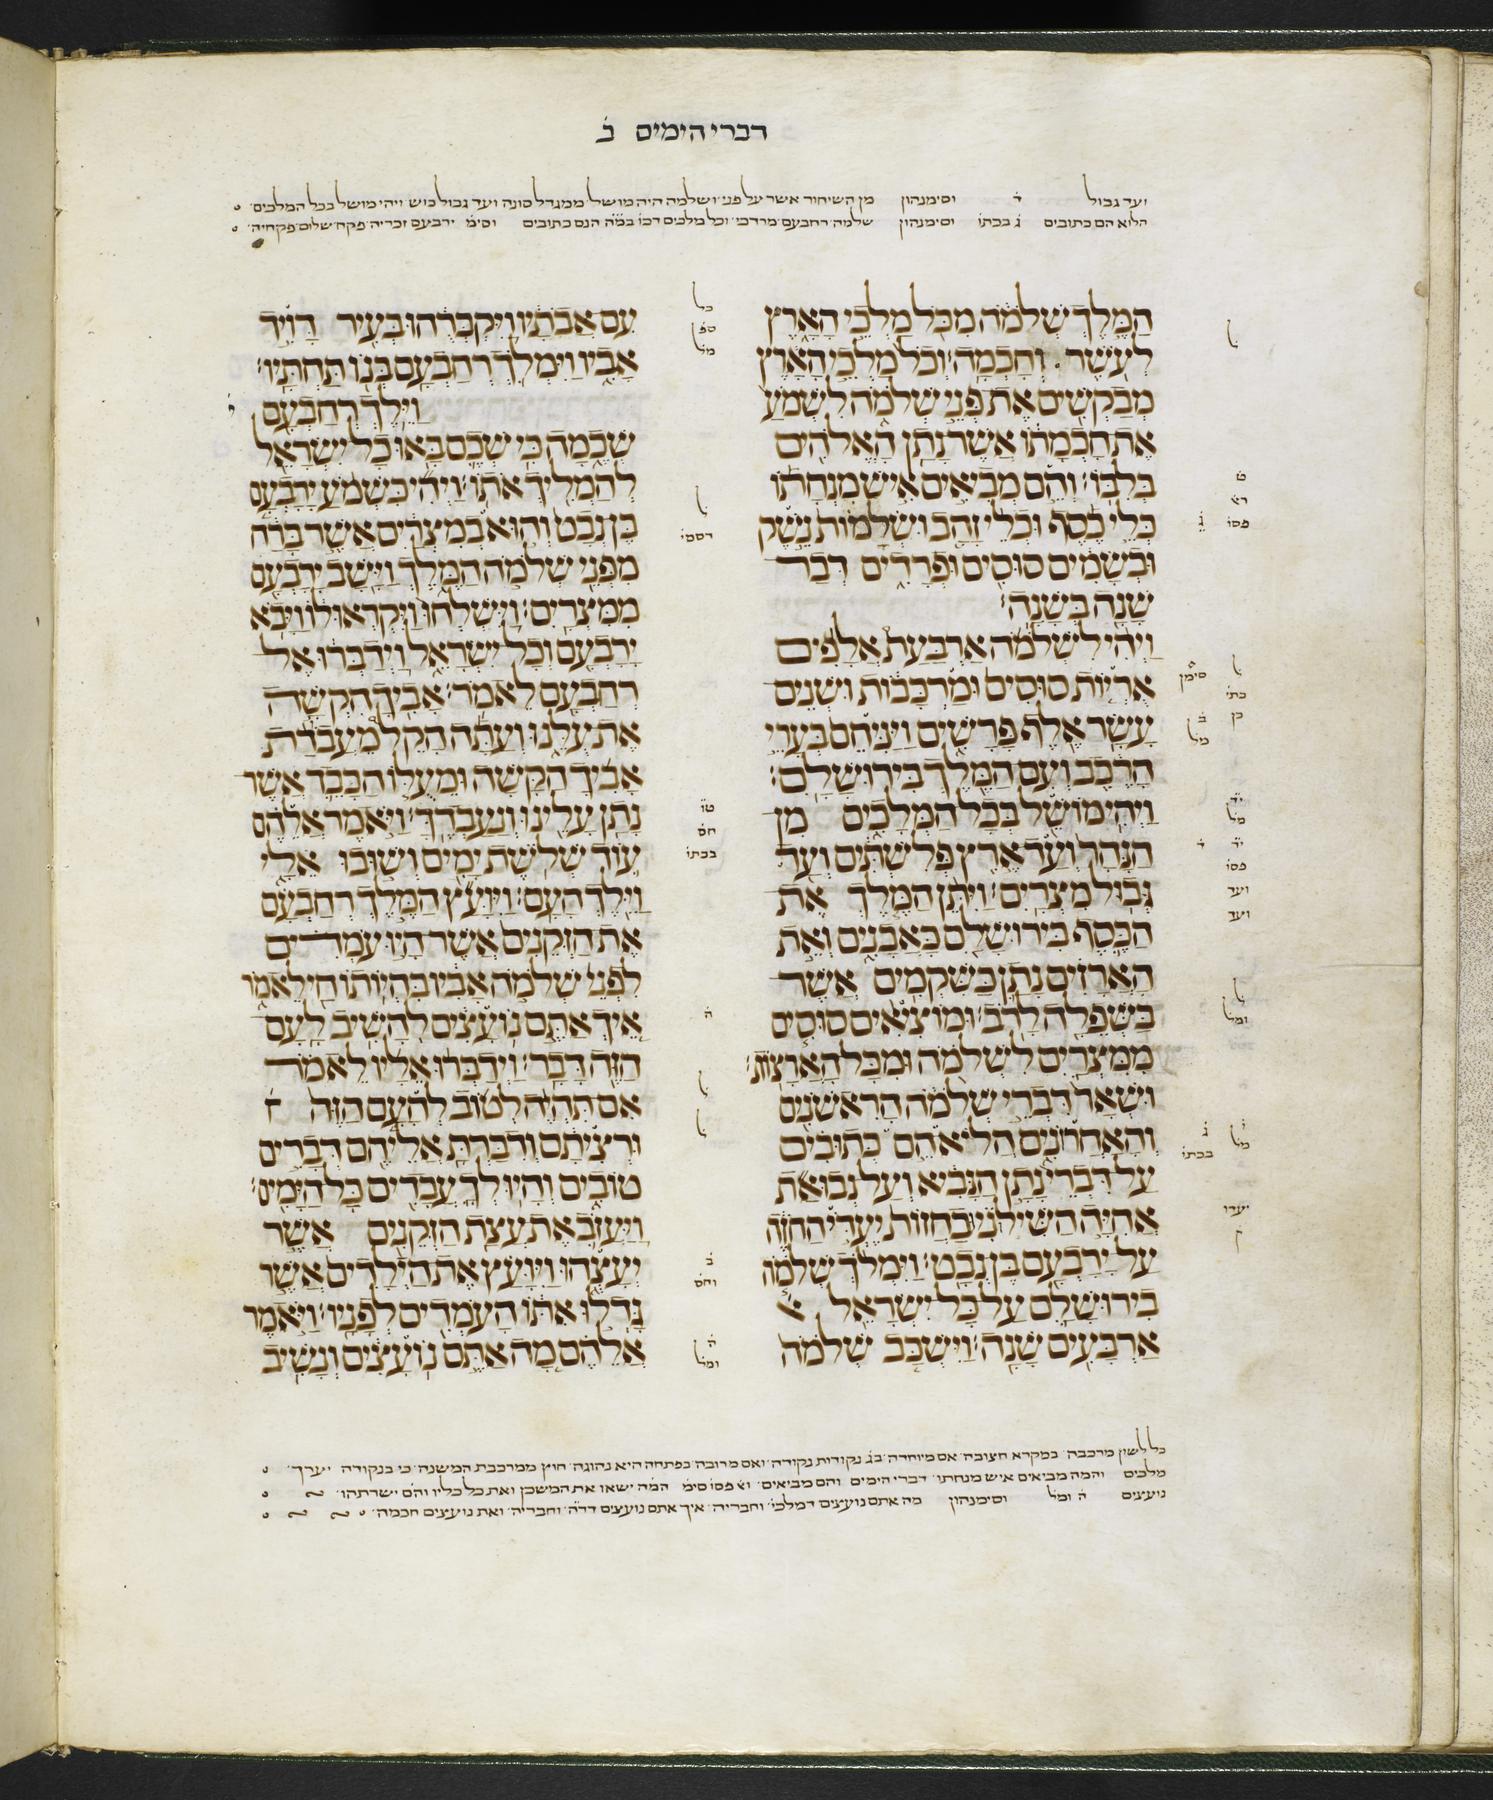 דברי הימים ב
ועד גבול ד וסימנהון מן השיחור אשר על פני ושלמה היה מושל ממגדל סונה ועד גבול כוש ויהי מושל בכל המלכים
הלוא הם כתובים ג בכתו וסימנהון שלמה רחבעם מרדכי וכל מלכים דכו במ הנם כתובים וסימ ירבעם זכריה פקח שלום פקחיה
הַמֶּלֶךְ שְׁלֹמֹה מִכֹּל מַלְכֵי הָאָרֶץ
לְעֹשֶׁר וְחָכְמָה׃ וְכֹל מַלְכֵי הָאָרֶץ
מְבַקְשִׁים אֶת פְּנֵי שְׁלֹמֹה לִשְׁמֹעַ
אֶת חָכְמָתוֹ אֲשֶׁר נָתַן הָאֱלֹהִים
בְּלִבּוֹ׃ וְהֵם מְבִיאִים אִישׁ מִנְחָתוֹ
כְּלֵי כֶסֶף וּכְלֵי זָהָב וּשְׂלָמוֹת נֵשֶׁק
וּבְשָׂמִים סוּסִים וּפְרָדִים דְּבַר
שָׁנָה בְּשָׁנָה׃
וַיְהִי לִשְׁלֹמֹה אַרְבַּעַת אֲלָפִים
אֻרְיוֹת סוּסִים וּמַרְכָּבוֹת וּשְׁנֵים
עָשָׂר אֶלֶף פָּרָשִׁים וַיַּנִּיחֵם בְּעָרֵי
הָרֶכֶב וְעִם הַמֶּלֶךְ בִּירוּשָׁלָ͏ִם׃
וַיְהִי מוֹשֵׁל בְּכָל הַמְּלָכִים מִן
הַנָּהָר וְעַד אֶרֶץ פְּלִשְׁתִּים וְעַד
גְּבוּל מִצְרָיִם׃ וַיִּתֵּן הַמֶּלֶךְ אֶת
הַכֶּסֶף בִּירוּשָׁלַ͏ִם כָּאֲבָנִים וְאֵת
הָאֲרָזִים נָתַן כַּשִּׁקְמִים אֲשֶׁר
בַּשְּׁפֵלָה לָרֹב׃ וּמוֹצִיאִים סוּסִים
מִמִּצְרַיִם לִשְׁלֹמֹה וּמִכָּל הָאֲרָצוֹת׃
וּשְׁאָר דִּבְרֵי שְׁלֹמֹה הָרִאשֹׁנִים
וְהָאֲחרוֹנִים הֲלוֹא הֵם כְּתוּבִים
עַל דִּבְרֵי נָתָן הַנָּבִיא וְעַל נְבוּאַת
אֲחִיָּה הַשִּׁילוֹנִי וּבַחֲזוֹת יֶעְדּוֹ הַחֹזֶה
עַל יָרָבְעָם בֶּן נְבָט׃ וַיִּמְלֹךְ שְׁלֹמֹה
בִירוּשָׁלַ͏ִם עַל כָּל יִשְׂרָאֵל
אַרְבָּעִים שָׁנָה׃ וַיִּשְׁכַּב שְׁלֹמֹה
עִם אֲבֹתָיו וַיִּקְבְּרֻהוּ בְּעִיר דָּוִיד
אָבִיו וַיִּמְלֹךְ רְחַבְעָם בְּנוֹ תַּחְתָּיו׃
וַיֵּלֶךְ רְחַבְעָם
שְׁכֶמָה כִּי שְׁכֶם בָּאוּ כָל יִשְׂרָאֵל
לְהַמְלִיךְ אֹתוֹ׃ וַיְהִי כִּשְׁמֹעַ יָרָבְעָם
בֶּן נְבָט וְהוּא בְמִצְרַיִם אֲשֶׁר בָּרַח
מִפְּנֵי שְׁלֹמֹה הַמֶּלֶךְ וַיָּשָׁב יָרָבְעָם
מִמִּצְרָיִם׃ וַיִּשְׁלְחוּ וַיִּקְרְאוּ לוֹ וַיָּבֹא
יָרָבְעָם וְכָל יִשְׂרָאֵל וַיְדַבְּרוּ אֶל
רְחַבְעָם לֵאמֹר׃ אָבִיךָ הִקְשָׁה
אֶת עֻלֵּנוּ וְעַתָּה הָקֵל מֵעֲבֹדַת
אָבִיךָ הַקָּשָׁה וּמֵעֻלּוֹ הַכָּבֵד אֲשֶׁר
נָתַן עָלֵינוּ וְנַעַבְדֶךָּ׃ וַיֹּאמֶר אֲלֵהֶם
עוֹד שְׁלֹשֶׁת יָמִים וְשׁוּבוּ אֵלָי
וַיֵּלֶךְ הָעָם׃ וַיִּוָּעַץ הַמֶּלֶךְ רְחַבְעָם
אֶת הַזְּקֵנִים אֲשֶׁר הָיוּ עֹמְדִים
לִפְנֵי שְׁלֹמֹה אָבִיו בִּהְיֹתוֹ חַי לֵאמֹר
אֵיךְ אַתֶּם נוֹעָצִים לְהָשִׁיב לָעָם
הַזֶּה דָּבָר׃ וַיְדַבְּרוּ אֵלָיו לֵאמֹר
אִם תִּהְיֶה לְטוֹב לְהָעָם הַזֶּה
וּרְצִיתָם וְדִבַּרְתָּ אֲלֵיהֶם דְּבָרִים
טוֹבִים וְהָיוּ לְךָ עֲבָדִים כָּל הַיָּמִים׃
וַיַּעֲזֹב אֶת עֲצַת הַזְּקֵנִים אֲשֶׁר
יְעָצֻהוּ וַיִּוָּעַץ אֶת הַיְלָדִים אֲשֶׁר
גָּדְלוּ אִתּוֹ הָעֹמְדִים לְפָנָיו׃ וַיֹּאמֶר
אֲלֵהֶם מָה אַתֶּם נוֹעָצִים וְנָשִׁיב
כל לשון מרכבה במקרא חצובה אם מיוחדה בג נקודות נקודה ואם מרובה בפתחה היא נהוגה חוץ ממרכבת המשנה כי בנקודה יערך
מלכים והמה מביאים איש מנחתו דברי הימים והם מביאים וא פסו סימ המה ישאו את המשכן ואת כל כליו והם ישרתהו
נועצים ה ומל וסימנהון מה אתם נועצים דמלכי וחבריה איך אתם נועצים דדה וחבריה ואת נועצים חכמה